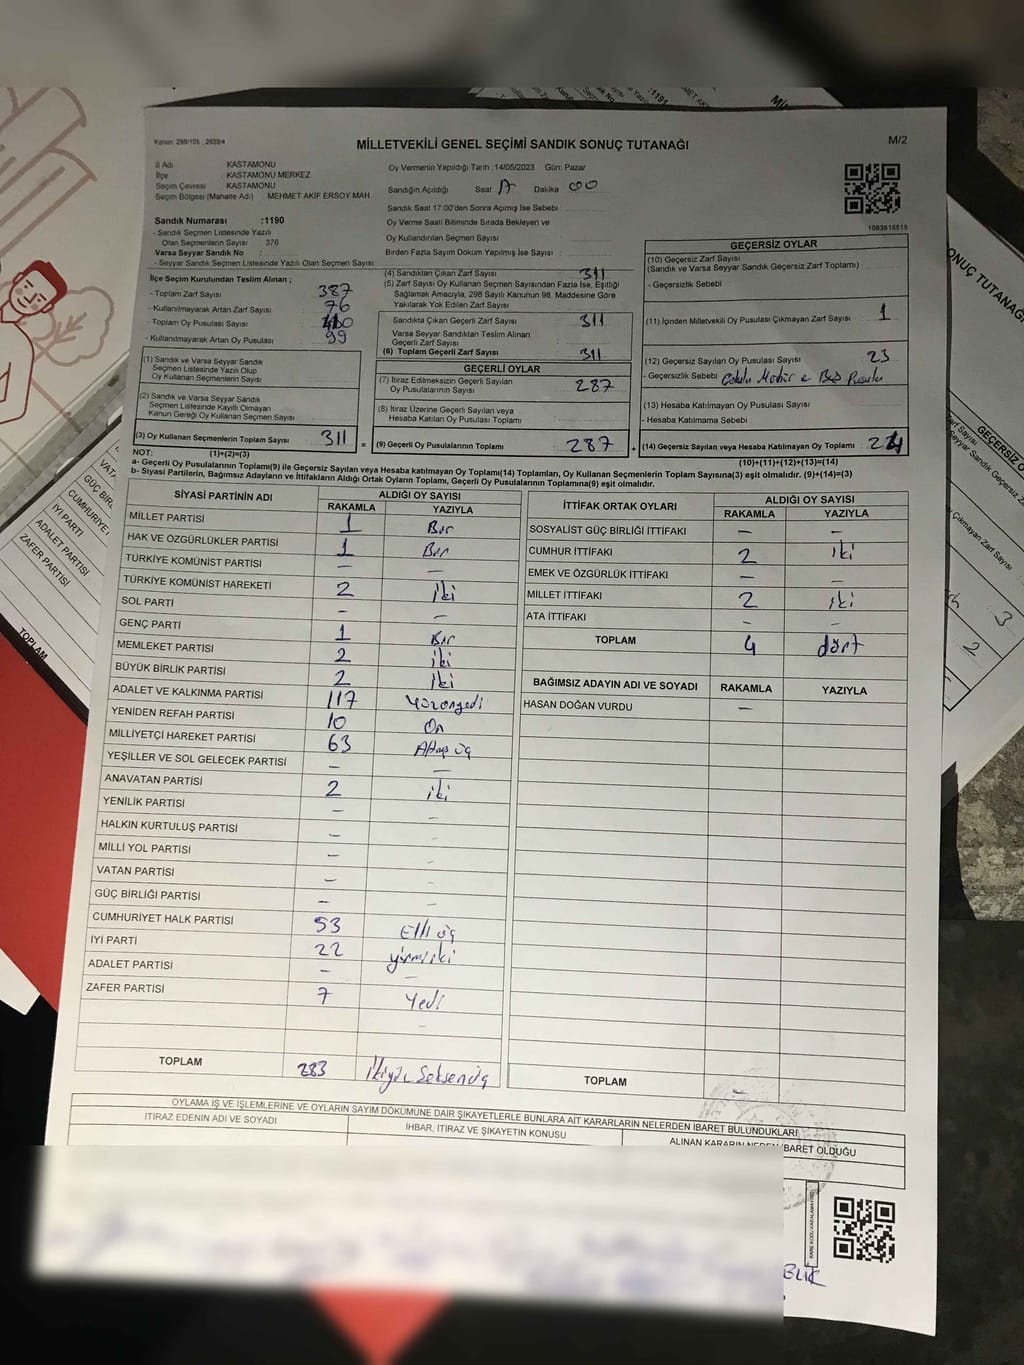 Kanun. 298/105 , 2839/4
MİLLETVEKİLİ GENEL SEÇİMİ SANDIK SONUÇ TUTANAĞI
M/2
İl Adı KASTAMONU
İlçe KASTAMONU MERKEZ
Seçim Çevresi KASTAMONU
Seçim Bölgesi (Mahalle Adı) : MEHMET AKİF ERSOY MAH
Sandık Numarası :1190
- Sandık Seçmen Listesinde Yazılı
Olan Seçmenlerin Sayısı 376
Varsa Seyyar Sandık No :
- Seyyar Sandık Seçmen Listesinde Yazılı Olan Seçmen Sayısı
Oy Vermenin Yapıldığı Tarih :14/05/2023 Gün: Pazar
Sandığın Açıldığı Saat 17 Dakika 00
Sandık Saat 17:00'den Sonra Açılmış İse Sebebi :
Oy Verme Saati Bitiminde Sırada Bekleyen ve
Oy Kullandırılan Seçmen Sayısı
Birden Fazla Sayım Döküm Yapılmış İse Sayısı :
1083815515
İlçe Seçim Kurulundan Teslim Alınan ;
- Toplam Zarf Sayısı 387
- Kullanılmayarak Artan Zarf Sayısı 76
- Toplam Oy Pusulası Sayısı
- Kullanılmayarak Artan Oy Pusulası 99
(1) Sandık ve Varsa Seyyar Sandık
Seçmen Listesinde Yazılı Olup
Oy Kullanan Seçmenlerin Sayısı
(2) Sandık ve Varsa Seyyar Sandık
Seçmen Listesinde Kayıtlı Olmayan
Kanun Gereği Oy Kullanan Seçmen Sayısı
(3) Oy Kullanan Seçmenlerin Toplam Sayısı 311 =
(4) Sandıktan Çıkan Zarf Sayısı 311
(5) Zarf Sayısı Oy Kullanan Seçmen Sayısından Fazla İse, Eşitliği
Sağlamak Amacıyla, 298 Sayılı Kanunun 98. Maddesine Göre
Yakılarak Yok Edilen Zarf Sayısı :
Sandıkta Çıkan Geçerli Zarf Sayısı 311
Varsa Seyyar Sandıktan Teslim Alınan
Geçerli Zarf Sayısı
(6) Toplam Geçerli Zarf Sayısı 311
GEÇERLİ OYLAR
(7) İtiraz Edilmeksizin Geçerli Sayılan
Oy Pusulalarının Sayısı 287
(8) İtiraz Üzerine Geçerli Sayılan veya
Hesaba Katılan Oy Pusulası Toplamı
(9) Geçerli Oy Pusulalarının Toplamı 287 +
GEÇERSİZ OYLAR
(10) Geçersiz Zarf Sayısı
(Sandık ve Varsa Seyyar Sandık Geçersiz Zarf Toplamı) :
- Geçersizlik Sebebi :
(11) İçinden Milletvekili Oy Pusulası Çıkmayan Zarf Sayısı 1
(12) Geçersiz Sayılan Oy Pusulası Sayısı 23
- Geçersizlik Sebebi :
(13) Hesaba Katılmayan Oy Pusulası Sayısı
- Hesaba Katılmama Sebebi :
(14) Geçersiz Sayılan veya Hesaba Katılmayan Oy Toplamı 24
NOT: (1)+(2)=(3) (10)+(11)+(12)+(13)=(14)
a- Geçerli Oy Pusulalarının Toplamı(9) ile Geçersiz Sayılan veya Hesaba katılmayan Oy Toplamı(14) Toplamları, Oy Kullanan Seçmenlerin Toplam Sayısına(3) eşit olmalıdır. (9)+(14)=(3)
b- Siyasi Partilerin, Bağımsız Adayların ve İttifakların Aldığı Ortak Oyların Toplamı, Geçerli Oy Pusulalarının Toplamına(9) eşit olmalıdır.
SİYASİ PARTİNİN ADI ALDIĞI OY SAYISI
RAKAMLA YAZIYLA
MİLLET PARTİSİ 1 Bir
HAK VE ÖZGÜRLÜKLER PARTİSİ 1 Bir
TÜRKİYE KOMÜNİST PARTİSİ – –
TÜRKİYE KOMÜNİST HAREKETİ 2 iki
SOL PARTİ – –
GENÇ PARTİ 1 Bir
MEMLEKET PARTİSİ 2 iki
BÜYÜK BİRLİK PARTİSİ 2 iki
ADALET VE KALKINMA PARTİSİ 117 Yüzonyedi
YENİDEN REFAH PARTİSİ 10 On
MİLLİYETÇİ HAREKET PARTİSİ 63 Altmış üç
YEŞİLLER VE SOL GELECEK PARTİSİ – –
ANAVATAN PARTİSİ 2 iki
YENİLİK PARTİSİ – –
HALKIN KURTULUŞ PARTİSİ – –
MİLLİ YOL PARTİSİ – –
VATAN PARTİSİ – –
GÜÇ BİRLİĞİ PARTİSİ – –
CUMHURİYET HALK PARTİSİ 53 Elli üç
İYİ PARTİ 22 yirmiiki
ADALET PARTİSİ – –
ZAFER PARTİSİ 7 Yedi
–
TOPLAM 283 İkiyüz Seksenüç
İTTİFAK ORTAK OYLARI ALDIĞI OY SAYISI
RAKAMLA YAZIYLA
SOSYALİST GÜÇ BİRLİĞİ İTTİFAKI – –
CUMHUR İTTİFAKI 2 iki
EMEK VE ÖZGÜRLÜK İTTİFAKI – –
MİLLET İTTİFAKI 2 iki
ATA İTTİFAKI – –
TOPLAM 4 dört
BAĞIMSIZ ADAYIN ADI VE SOYADI RAKAMLA YAZIYLA
HASAN DOĞAN VURDU –
TOPLAM –
OYLAMA İŞ VE İŞLEMLERİNE VE OYLARIN SAYIM DÖKÜMÜNE DAİR ŞİKAYETLERLE BUNLARA AİT KARARLARIN NELERDEN İBARET BULUNDUKLARI
İTİRAZ EDENİN ADI VE SOYADI İHBAR, İTİRAZ VE ŞİKAYETİN KONUSU ALINAN KARARIN NEDEN İBARET OLDUĞU
VATAN
GÜÇ BİR
CUMHURİYE
İYİ PARTİ
ADALET PARTİSİ
ZAFER PARTİSİ
TOPLAM
:1191
ONUÇ TUTANAĞI
3
2